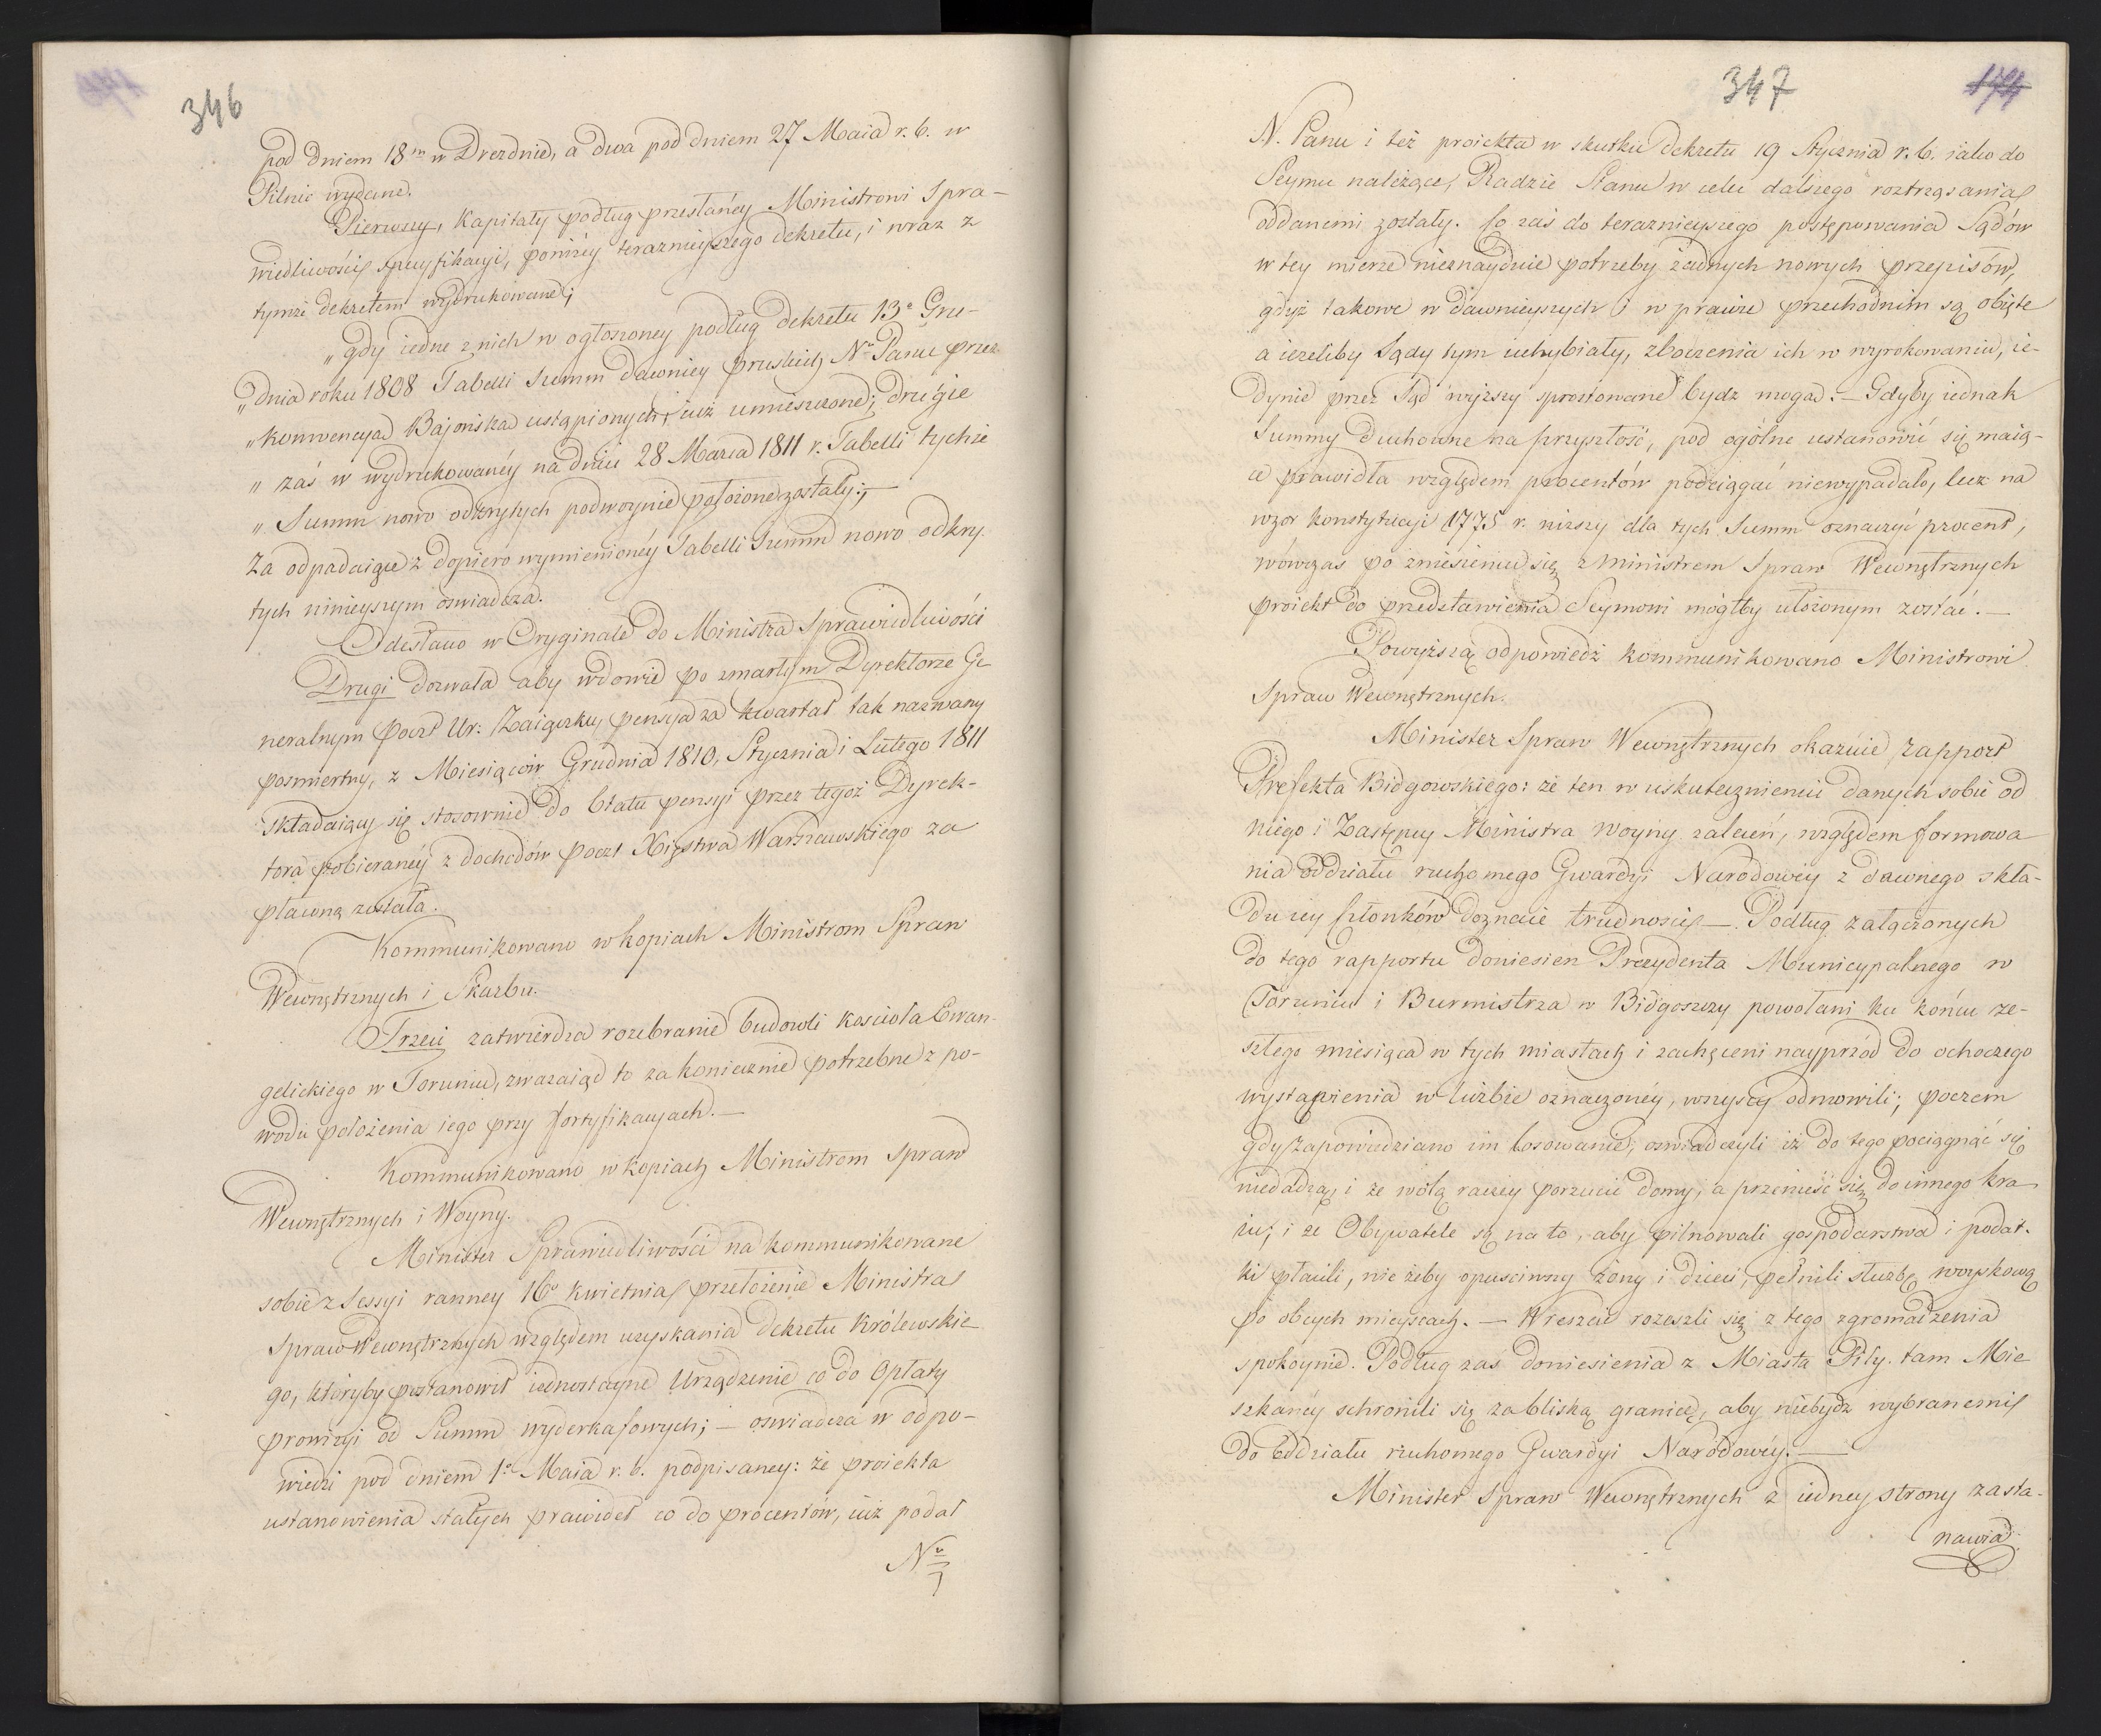 346
pod dniem 18m w Dreznie, a dwa pod dniem 27 Maia r. b. w
Pilnic wydane.
Pierwszy, Kapitały podług przesłanéy Ministrowi Spra-
wiedliwości specyfikacyi, poniżéy teraznieyszego dekretu, i wraz z
tymże dekretem wydrukowane;
„gdy iedne z nich w ogłoszoney podług dekretu 13o Gru-
„dnia roku 1808 Tabelli Summ dawniey pruskich No Panu przez
„konwencyą Bajońską ustąpionych, iuż umieszczone; drugie
„zaś w wydrukowanéy na dniu 28 Marca 1811 r. Tabelli tychże
„Summ nowo odkrytych podwoynie położone zostały;—
Za odpadaiące z dopiero wymienionéy Tabelli Summ nowo odkry-
tych ninieyszym oswiadcza.
Odesłano w Oryginale do Ministra Sprawiedliwości
Drugi dozwala aby wdowie po zmarłym Dyrektorze Ge
neralnym Poczt Ur: Zaiączku, pensya za kwartał tak nazwany
posmiertny, z Miesięcow Grudnia 1810, Stycznia i Lutego 1811
składaiący się, stosownie do Etatu pensyi przez tegoż Dyrek-
tora pobieranéy z dochodów poczt Xięstwa Warszawskiego za
płaconą została.
Kommunikowano w kopiach Ministrom Spraw
Wewnętrznych i Skarbu.
Trzeci zatwierdza rozebranie budowli kościoła Ewan-
gelickiego w Toruniu, zważaiąc to za koniecznie potrzebne z po-
wodu położenia iego przy fortyfikacyach.—
Kommunikowano w kopiach Ministrom Spraw
Wewnętrznych i Woyny.
Minister Sprawiedliwości na kommunikowane
sobie z Sessyi ranney 16o Kwietnia przełożenie Ministra
Spraw Wewnętrznych względem uzyskania dekretu Królewskie
go, któryby postanowił iednostayne Urządzenie co do Opłaty
prowizyi od Summ wyderkafowych;— oswiadcza w odpo-
wiedzi pod dniem 1o Maia r. b. podpisaney: że proiekta
ustanowienia stałych prawideł co do procentów, iuż podał
No
347
174
N. Panu i też proiekta w skutku dekretu 19 Stycznia r. b. iako do
Seymu należące, Radzie Stanu w celu dalszego roztrząsania
oddanemi zostały. Co zaś do teraznieyszego postępowania Sądów
w tey mierze nieznayduie potrzeby żadnych nowych przepisów,
gdyż takowe w dawnieyszych i w prawie przechodnim są obięte
a ieżeliby Sądy tym uchybiały, zboczenia ich w wyrokowaniu, ie-
dynie przez Sąd wyższy sprostowane bydz mogą.— Gdyby iednak
Summy Duchowne na przyszłość, pod ogólne ustanowić się maią-
ce prawidła względem procentów podciągać niewypadało, lecz na
wzor konstytucyi 1775 r. niższy dla tych Summ oznaczyć procent,
wówczas po zniesieniu się z Ministrem Spraw Wewnętrznych
proiekt do przedstawienia Seymowi mógłby ułożonym zostać.—
Powyższą odpowiedź kommunikowano Ministrowi
Spraw Wewnętrznych.
Minister Spraw Wewnętrznych okazuie rapport
Prefekta Bidgowskiego: że ten w uskutecznieniu danych sobie od
niego i Zastępcy Ministra Woyny zaleceń, względem formowa
nia Oddziału ruchomego Gwardyi Narodowéy z dawnego skła-
du iey członków doznaie trudności— Podług załączonych
do tego rapportu doniesien Prezydenta Municypalnego w
Toruniu i Burmistrza w Bidgoszczy powołani ku końcu ze-
szłego miesiąca w tych miastach i zachęceni nayprzód do ochoczego
wystąpienia w liczbie oznaczonéy, wszyscy odmowili; poczem
gdy zapowiedziano im losowanie; oswiadczyli iż do tego pociągnąć się
niedadzą, i że wolą raczey porzucić domy, a przenieść się do innego kra
iu; i że Obywatele są na to, aby pilnowali gospodarstwa i podat-
ki płacili, nie żeby opusciwszy żony i dzieci, pełnili służbę woyskową
po obcych mieyscach.— Wreszcie rozeszli się z tego zgromadzenia
spokoynie. Podług zaś doniesienia z Miasta Piły. tam Mie
szkańcy schronili się za bliską granicę, aby niebydz wybranemi
do Oddziału ruchomego Gwardyi Narodowéy.—
Minister Spraw Wewnętrznych z iedney strony zasta-
nawia